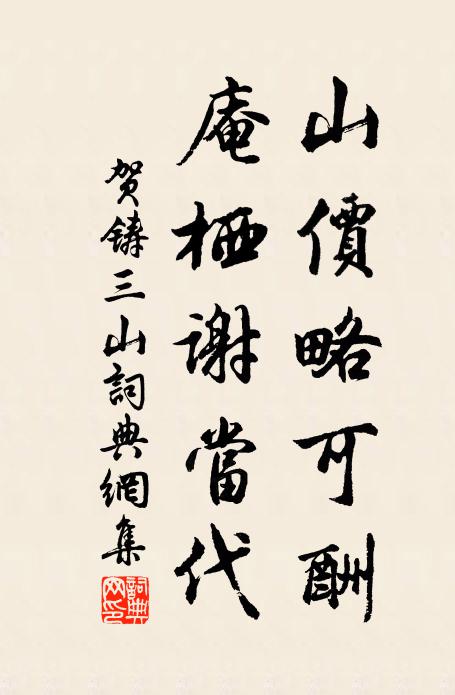 山價略可酬
庵栖謝當代
贺鑄三山詞典網集
詞典网印